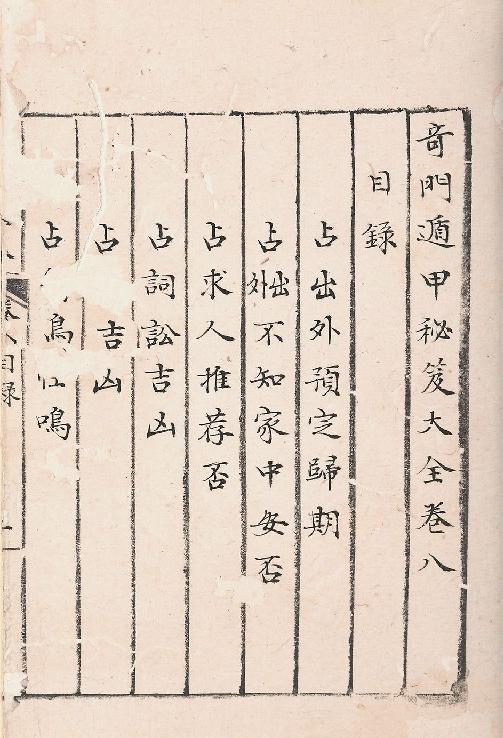 奇門遁甲秘笈大全卷八
目錄
占出外預定歸期
占出外不知家中安否
占求人推荐否
占詞訟吉凶
占 吉凶
占 鳥 鳴
卷八目錄